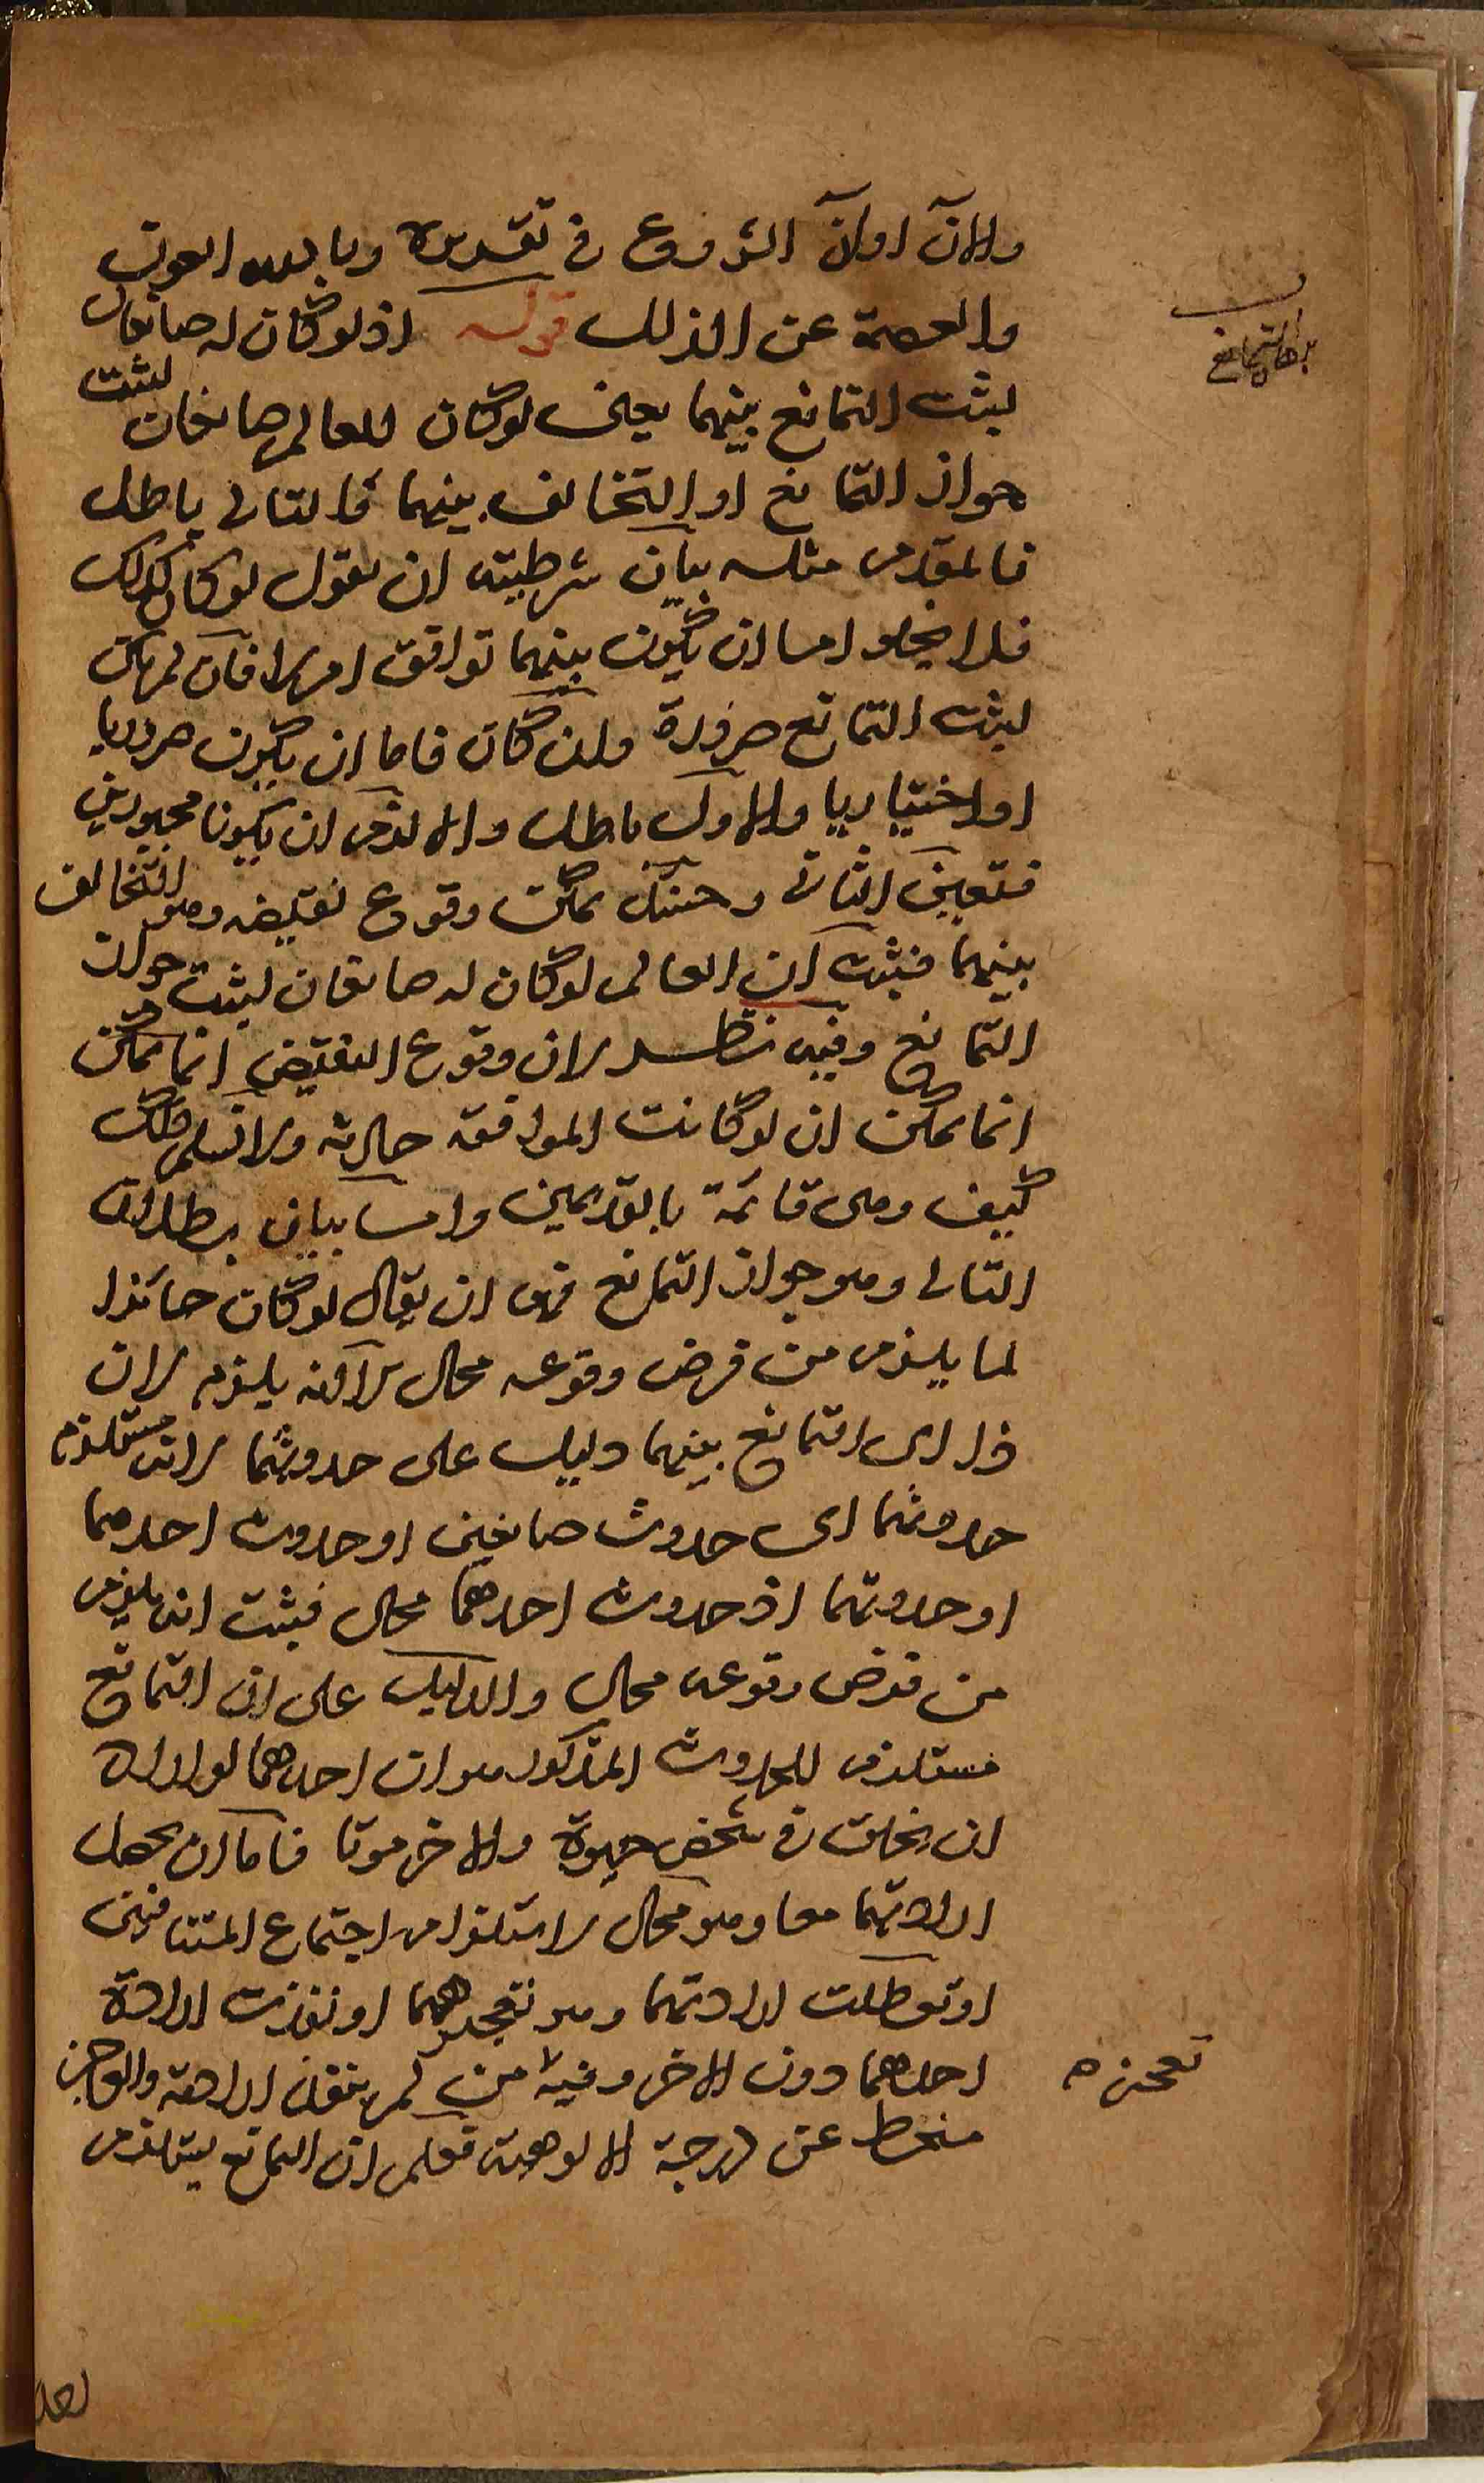 والآن اوان الشروع في تقديره وبالله العون
والعصمة عن الزلل قوله اذ لو كان له صانعان
لثبت التمانع بينهما يعنى لو كان للعالم صانعان لثبت
جواز التمانع او التخالف بينهما فالتالى باطل
فالمقدم مثله بيان شرطيته ان نقول لو كان كذلك
فلا يخلو اما ان يكون بينهما توافق ام لا فان لم يكن
لثبت التمانع ضرورة وان كان فاما ان يكون ضروريا
او اختياريا والاول باطل والا لزم ان يكونا مجبورين
فتعين الثانى وحينئذ يمكن وقوع نقيضه وهو التخالف
بينهما فثبت ان العالم لو كان له صانعان لثبت جواز
التمانع وفيه نظر لان وقوع النقيض انما يمكن
انما يمكن ان لو كانت الموافقة حادثة ولا نسلم ذلك
كيف وهى قائمة بالقديمين واما بيان بطلان
التالى وهو جواز التمانع فهو ان يقال لو كان جائزا
لما يلزم من فرض وقوعه محال لاكنه يلزم لان
ذا اى التمانع بينهما دليل على حدوثهما لانه مستلزم
حدوثهما اى حدوث صانعين او حدوث احدهما
او حدوثهما اذ حدوث احدهما محال فثبت انه يلزم
من فرض وقوعه محال والدليل على ان التمانع
مستلزم للحدوث المذكور هو ان احدهما لو اراد
ان يخلق في شخص حيوة والاخر موتا فاما ان يحصل
ارادتهما معا وهو محال لاستلزام اجتماع المتنافيين
او تعطلت ارادتهما وهو تعجيزهما او نفذت ارادة
احدهما دون الاخر وفيه من لم ينفذ ارادته والعاجز
منحط عن درجة الالوهية فعلم ان التمانع يستلزم
برهان التمانع
تعجيزه